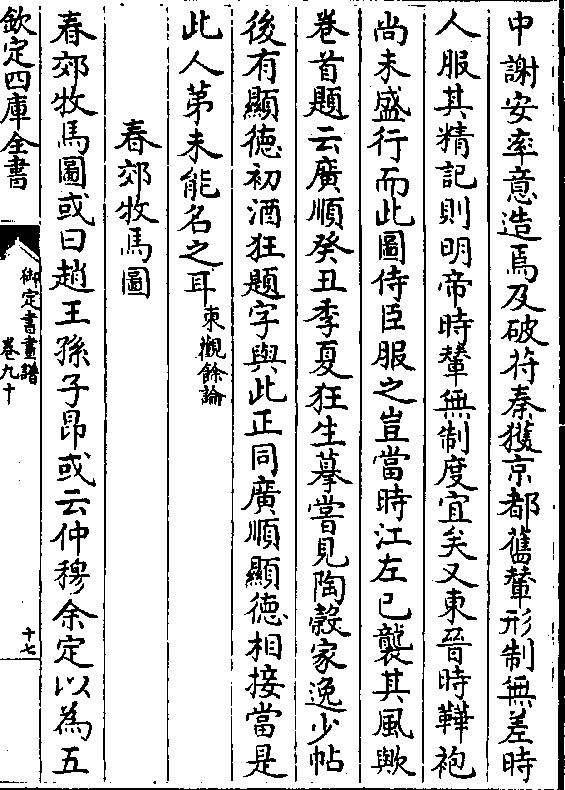 中謝安率意造焉及破苻秦獲京都舊輦形制無差時
人服其精記則明帝時輦無制度宜矣又東晉時鞾袍
尚未盛行而此圖侍臣服之豈當時江左已襲其風歟
卷首題云廣順癸丑季夏狂生摹嘗見陶穀家逸少帖
後有顯德初酒狂題字與此正同廣順顯德相接當是
此人第未能名之耳東觀餘論
春郊牧馬圖
春郊牧馬圖或曰趙王孫子昂或云仲穆余定以為五
欽定四庫全書
御定書畫譜
卷九十
十七